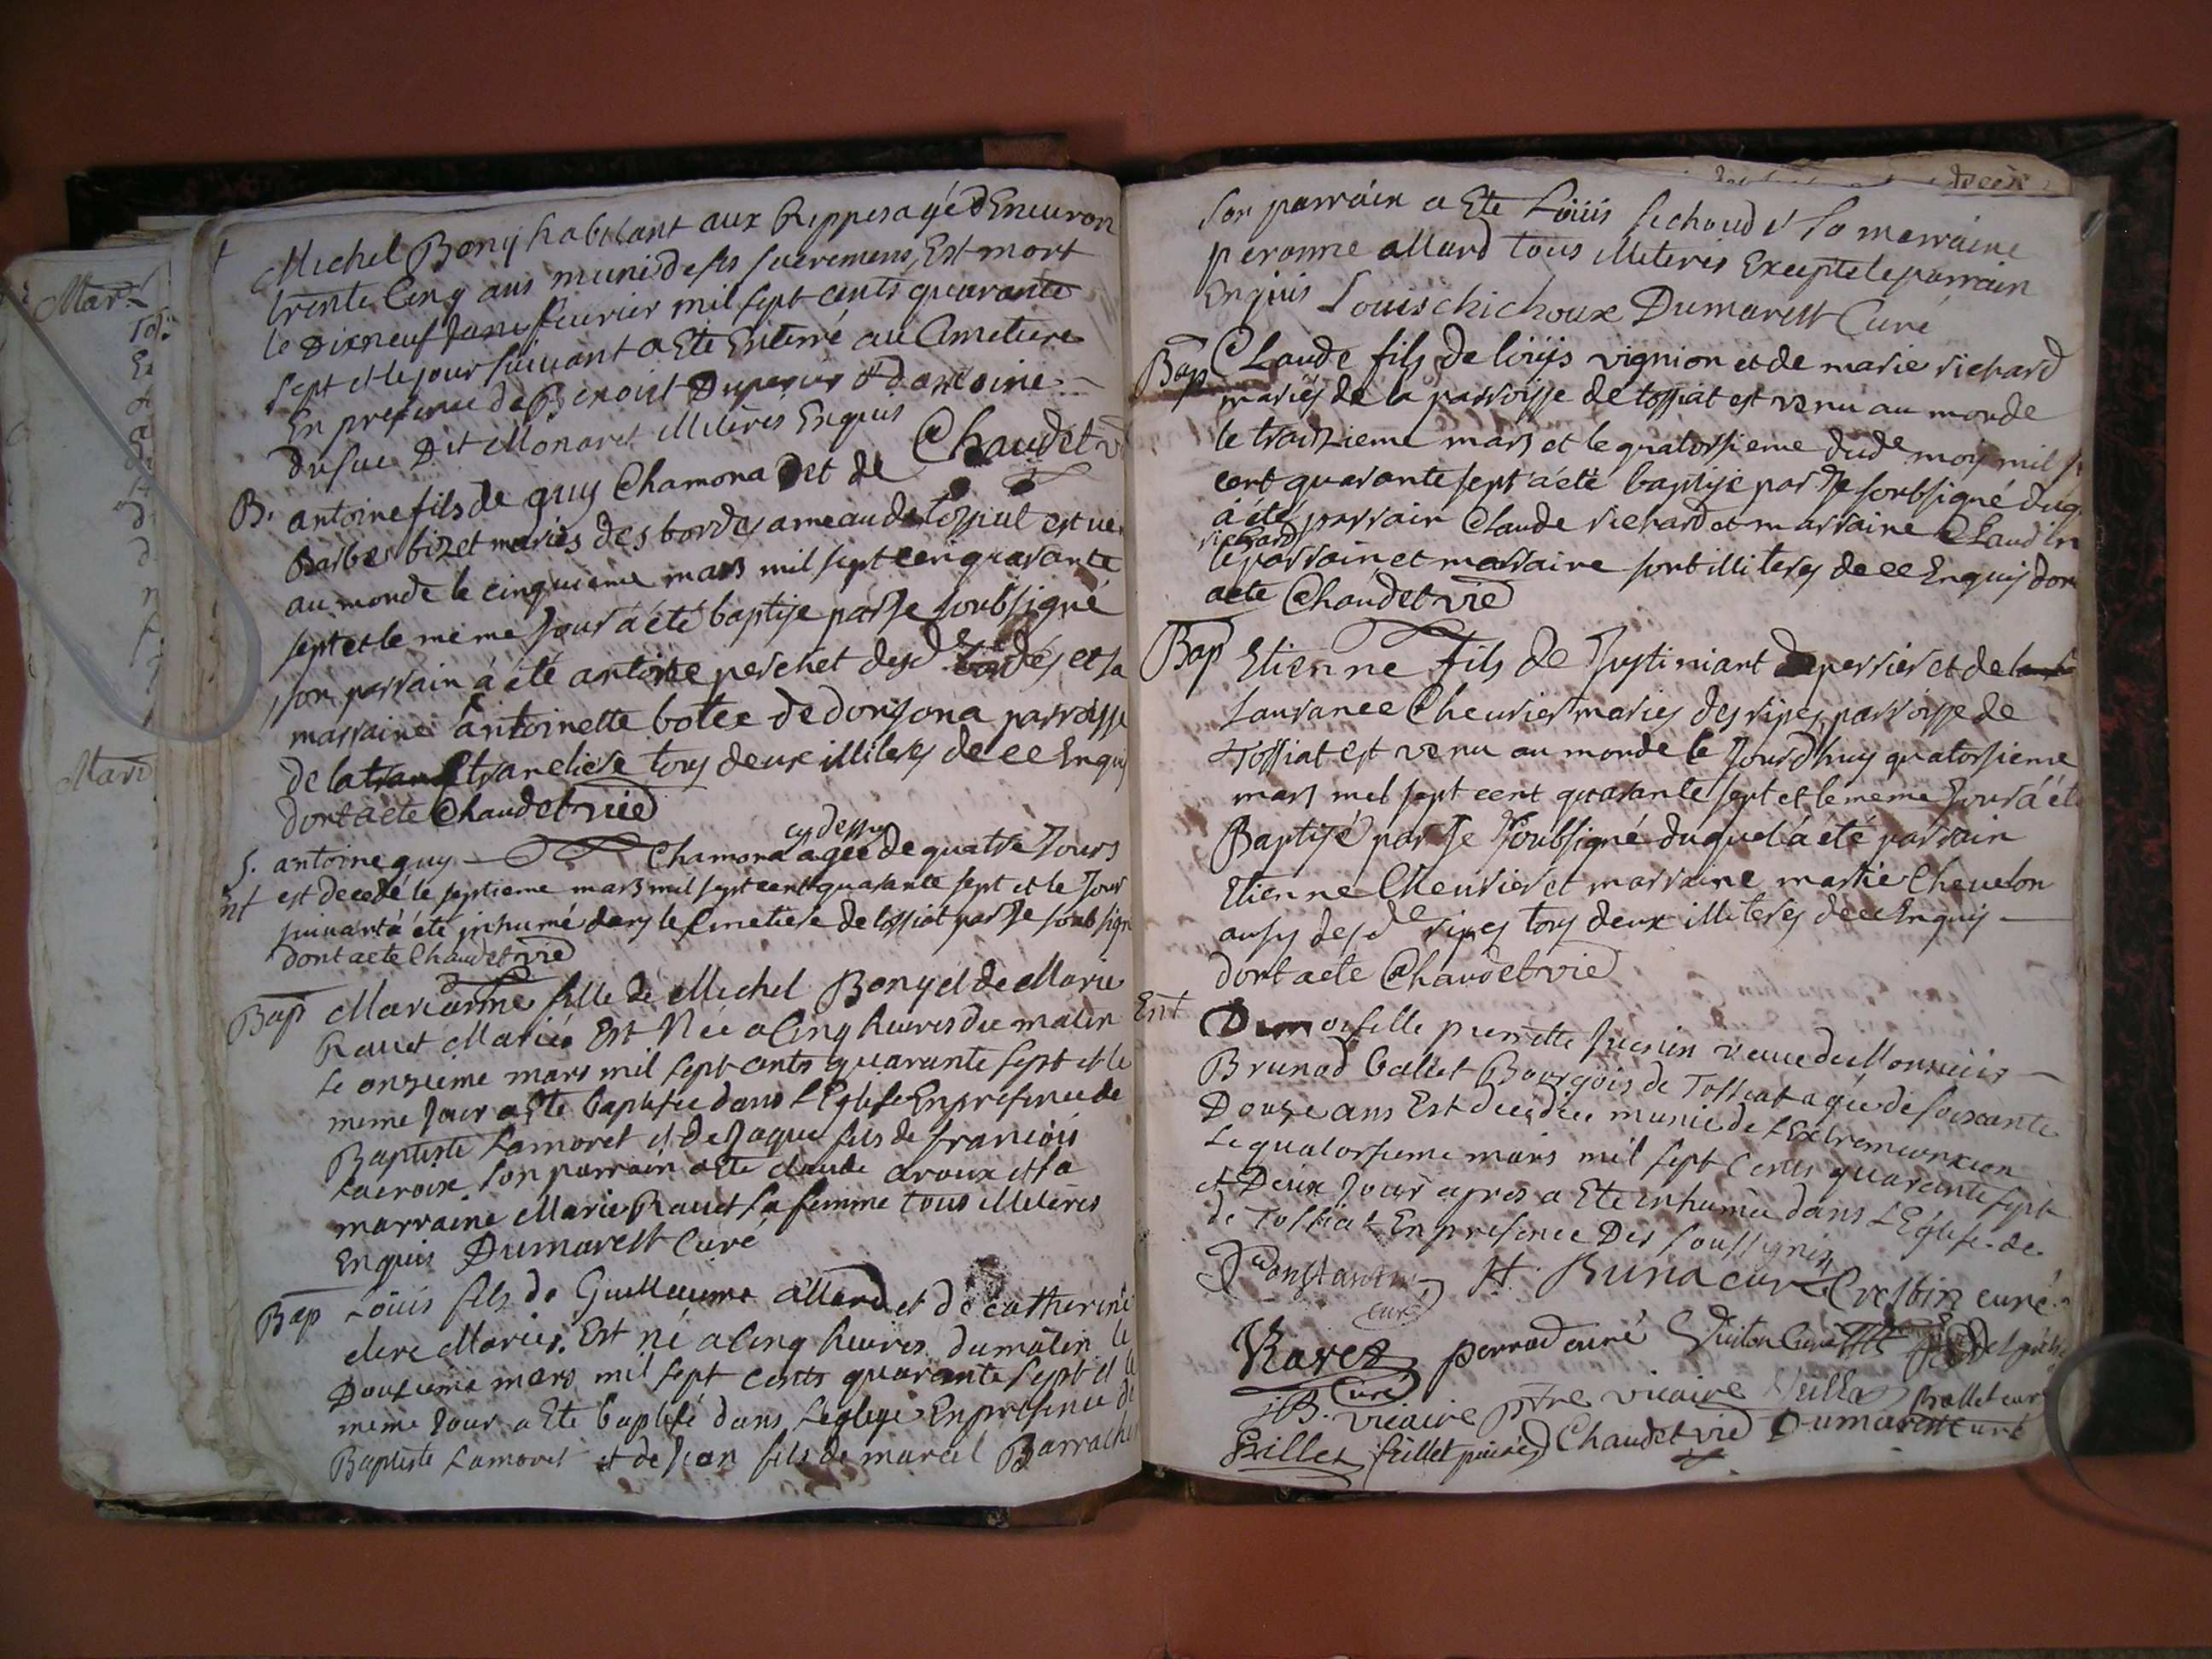 Michel Bony habitant aux Rippes agé d'Enuiron
trente Cinq ans muni de ses sacremens, Est mort
le Dixneuf feurier mil sept cents quarante
sept et le jour suiuant a Ete Enterré au Cimetiere
En presence de Benoist Duperier et d'antoine
dufue Dit Monaret illiterés Enquis
Chaudet v
B. antoine fils de guy Chamona et de
Barbe bizet mariés des bordes ameau de tossiat est ve
au monde le cinquieme mars mil sept cen quarante
sept et le meme Jour à été baptise par Je soubsigné
son parrain à été antoine perchet desd bordes et sa
marraine antoinette botex de donsona parroisse
de la trancliere tous deux illiterés de ce Enquis
dont acte Chaudet vic
S. antoine guy Chamona cy dessus agée de quatre Jours
Ent est decedé le septieme mars mil sept cent quarante sept et le Jour
suiuant à été inhumé dans le Cimetiere de tossiat par Je soubsign
dont acte Chaudet vic
Bap Marianne fille de Michel Bony et de Marie
Rauet Mariés Est Née a Cinq heures du matin
Le onzieme mars mil sept cents quarante sept et le
meme Jour a Ete baptisée dans L'Eglise En presence de
Baptiste Lamoret et de Jaque fils de francois
Lacroix son parrain a Ete claude aroux et sa
marraine Marie Rauet sa femme tous illiterés
Enquis Dumarest Curé
Bap Loüis fils de Guillaume allard et de catherine
clere Mariés. Est né a Cinq heures du matin le
Douzieme mars mil sept cents quarante sept et le
meme Jour a Ete baptisé dans Leglise En presence de
Baptiste Lamoret et de Jean fils de marcel Barrachin
son parrain a Ete Loüis Sechoud et sa marraine
peronne allard tous illiterés Excepté le parrain
Enquis Louis chichoux Dumarest Curé
Bap Claude fils de loüys vignion et de marie richard
mariés de la parroisse de tossiat est venu au monde
le traizieme mars et le quatorsieme dud mois mil s
cent quarante sept à été baptise par Je soubsigné duq
à été parrain Claude richard et marraine Claudin
richard
le parrain et marraine sont illiteres de ce Enquis don
acte Chaudet vic
Bap Etienne fils de Justiniant Deperrier et de
Laurance Cheurier maries des ripes parroisse de
Tossiat est venu au monde le Jourdhuy quatorsieme
mars mil sept cent quarante sept et le meme Jour à été
Baptisé par Je Soubsigné duquel à été parrain
Etienne Cheurier et marraine marie Cheuelon
ausy desd ripes tous deux illiteres de ce Enquis
dont acte Chaudet vic
Ent Demoiselle pierrette veuue de Monsieur
Brunod Ballet Bourgois de Tossiat agée de soixante
Douze ans Est decedée munie de L'Extremonxion
Le quatorsieme mars mil sept Cents quarante sept
et Deux Jour apres a Ete inhumée dans L'Eglise de
de Tossiat En presence Des soussignés
Constantin curé H. Buna curé Crestin curé
Ravet Curé perrod curé
J B. vicaire ptre vicaire Ballet curé
Chaudet vic Dumarest curé